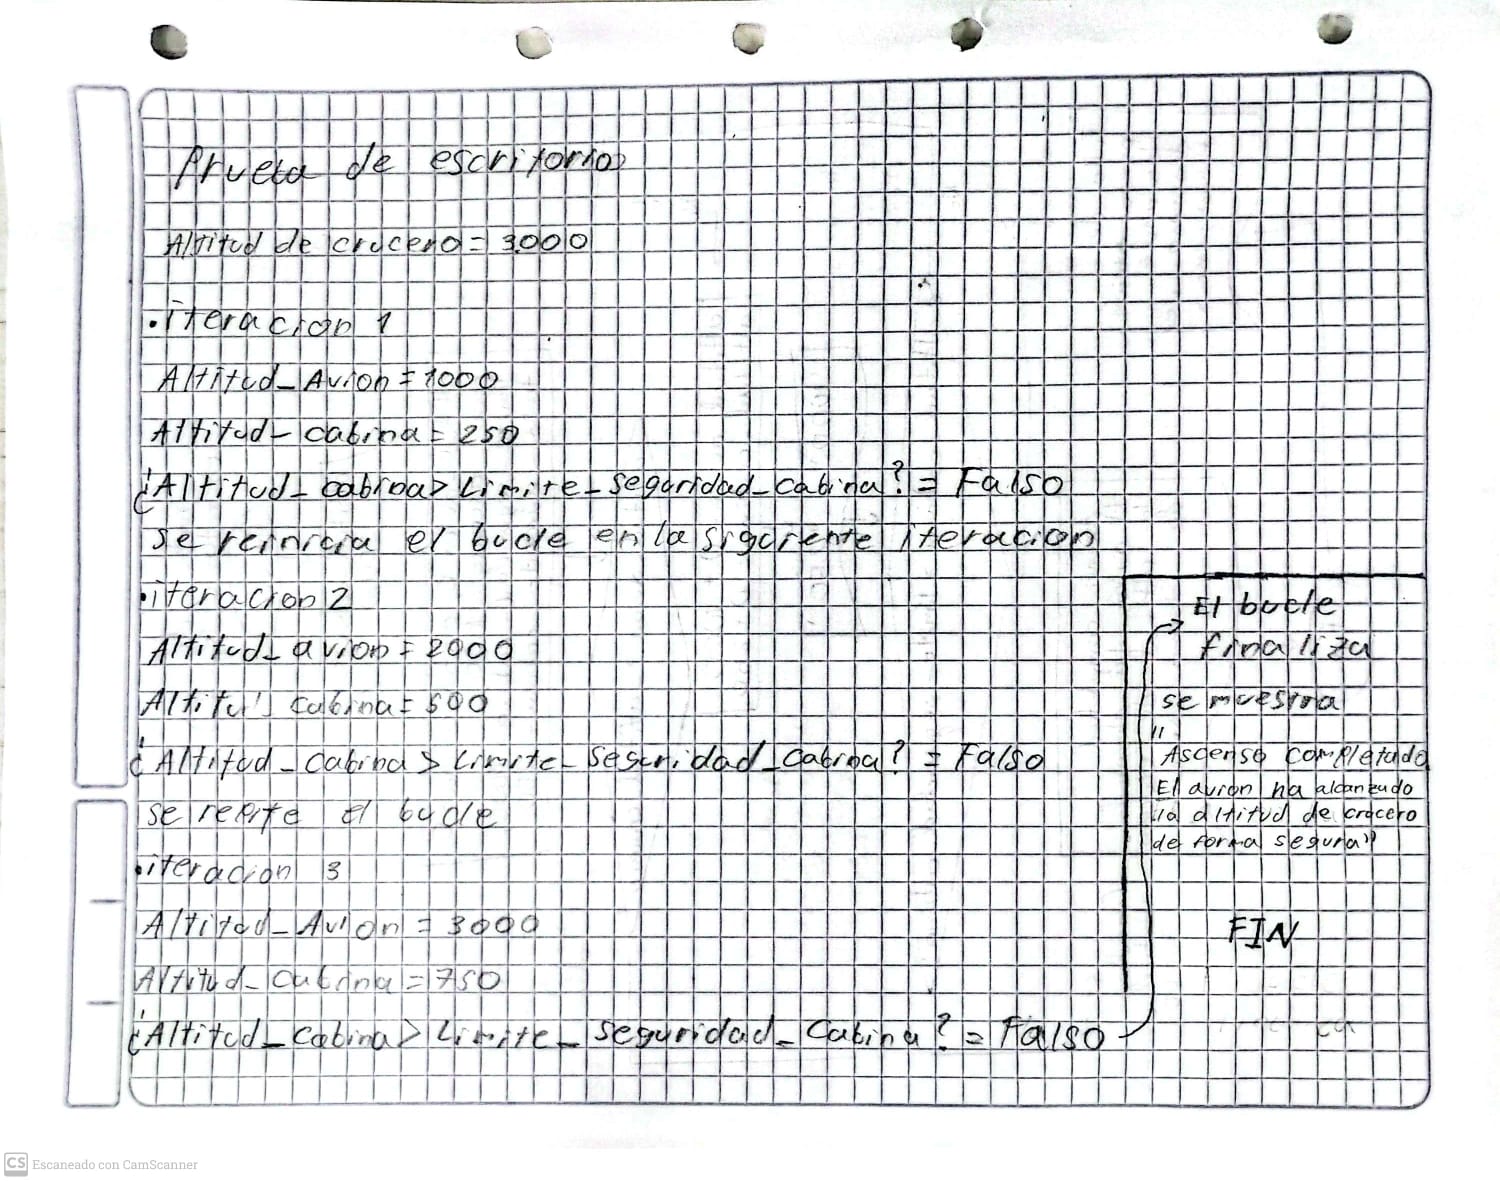 Prueba de escritorio
Altitud de crucero = 3000
• iteracion 1
Altitud_Avion = 1000
Altitud_cabina = 250
¿Altitud_cabina > Limite_seguridad_cabina? = Falso
se reinicia el bucle en la siguiente iteracion
• iteracion 2
Altitud_avion = 2000
Altitud cabina = 500
¿Altitud_cabina > Limite_seguridad_cabina? = Falso
se repite el bucle
• iteracion 3
Altitud_Avion = 3000
Altitud_cabina = 750
¿Altitud_cabina > Limite_seguridad_cabina? = Falso
El bucle
finaliza
se muestra
"
Ascenso completado
El avion ha alcanzado
la altitud de crucero
de forma segura"
FIN
CS Escaneado con CamScanner